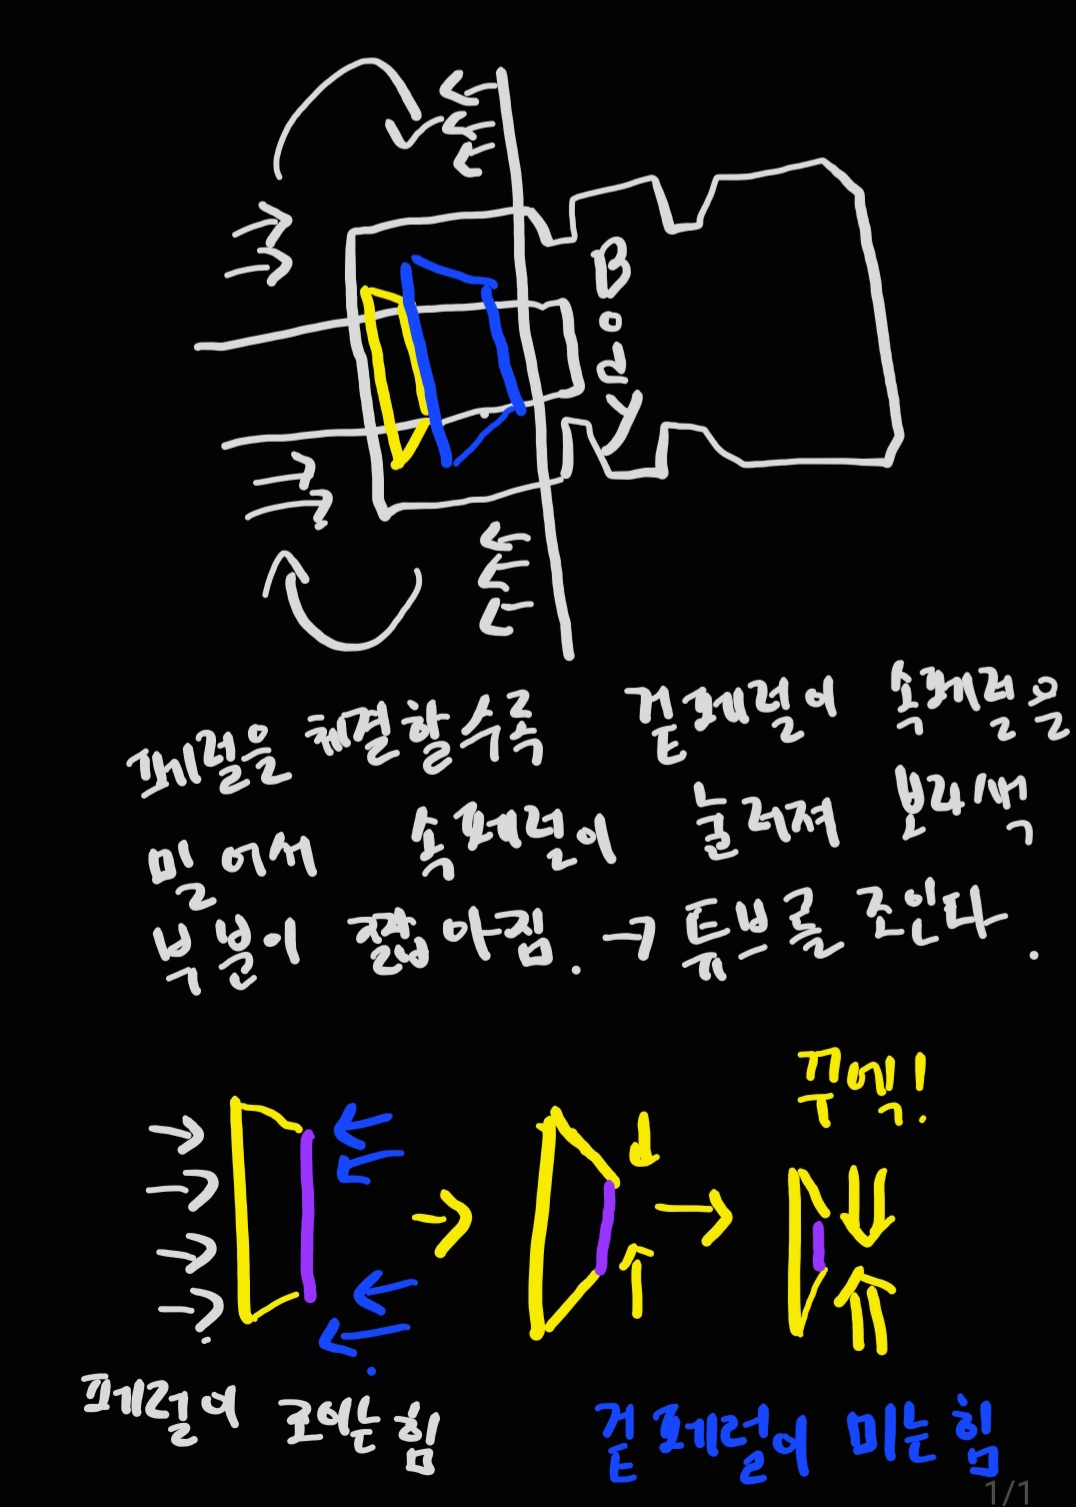 Body
페럴을 체결할수록 겉페럴이 속페럴을
밀어서 속페럴이 눌러져 보라색
부분이 짧아짐. → 튜브를 조인다.
꾸엑!
페럴이 조이는 힘
겉페럴이 미는 힘
1/1